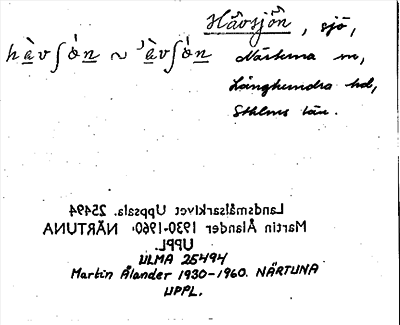 Håvsjön, sjö,
hàvʃòn ~ 'àvʃòn Närtuna sn,
Långhundra hd,
Sthlms län.
Landsmålsarkivet Uppsala. 25494
Martin Ålander 1930-1960. NÄRTUNA
UPPL.
ULMA 25494
Martin Ålander 1930-1960. NÄRTUNA
UPPL.